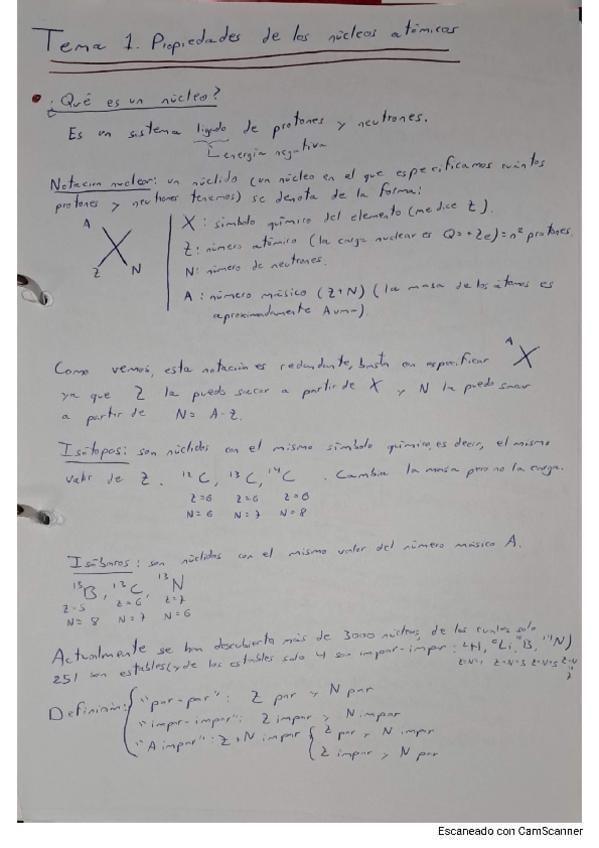 Tema 1. Propiedades de los núcleos atómicos
¿Qué es un núcleo?
Es un sistema ligado de protones y neutrones.
energía negativa
Notación nuclear: un núclido (un núcleo en el que especificamos cuántos
protones y neutrones tenemos) se denota de la forma:
A
X
Z N
X: símbolo químico del elemento (me dice Z).
Z: número atómico (la carga nuclear es Q=+Ze)=nº protones.
N: número de neutrones.
A: número másico (Z+N) (la masa de los átomos es
aproximadamente A uma).
Como vemos, esta notación es redundante, basta con especificar ᴬX
ya que Z la puedo sacar a partir de X y N la puedo sacar
a partir de N = A-Z.
Isótopos: son núclidos con el mismo símbolo químico, es decir, el mismo
valor de Z. ¹²C, ¹³C, ¹⁴C. Cambia la masa pero no la carga.
Z=6 Z=6 Z=6
N=6 N=7 N=8
Isóbaros: son núclidos con el mismo valor del número másico A.
¹³B, ¹³C, ¹³N
Z=5 Z=6 Z=7
N=8 N=7 N=6
Actualmente se han descubierto más de 3000 núcleos, de los cuales solo
251 son estables (y de los estables solo 4 son impar-impar: ²H, ⁶Li, ¹⁰B, ¹⁴N)
Z=N=1 Z=N=3 Z=N=5 Z=N=7
Definición: "par-par": Z par y N par
"impar-impar": Z impar y N impar
"A impar": Z+N impar Z par y N impar
Z impar y N par
Escaneado con CamScanner